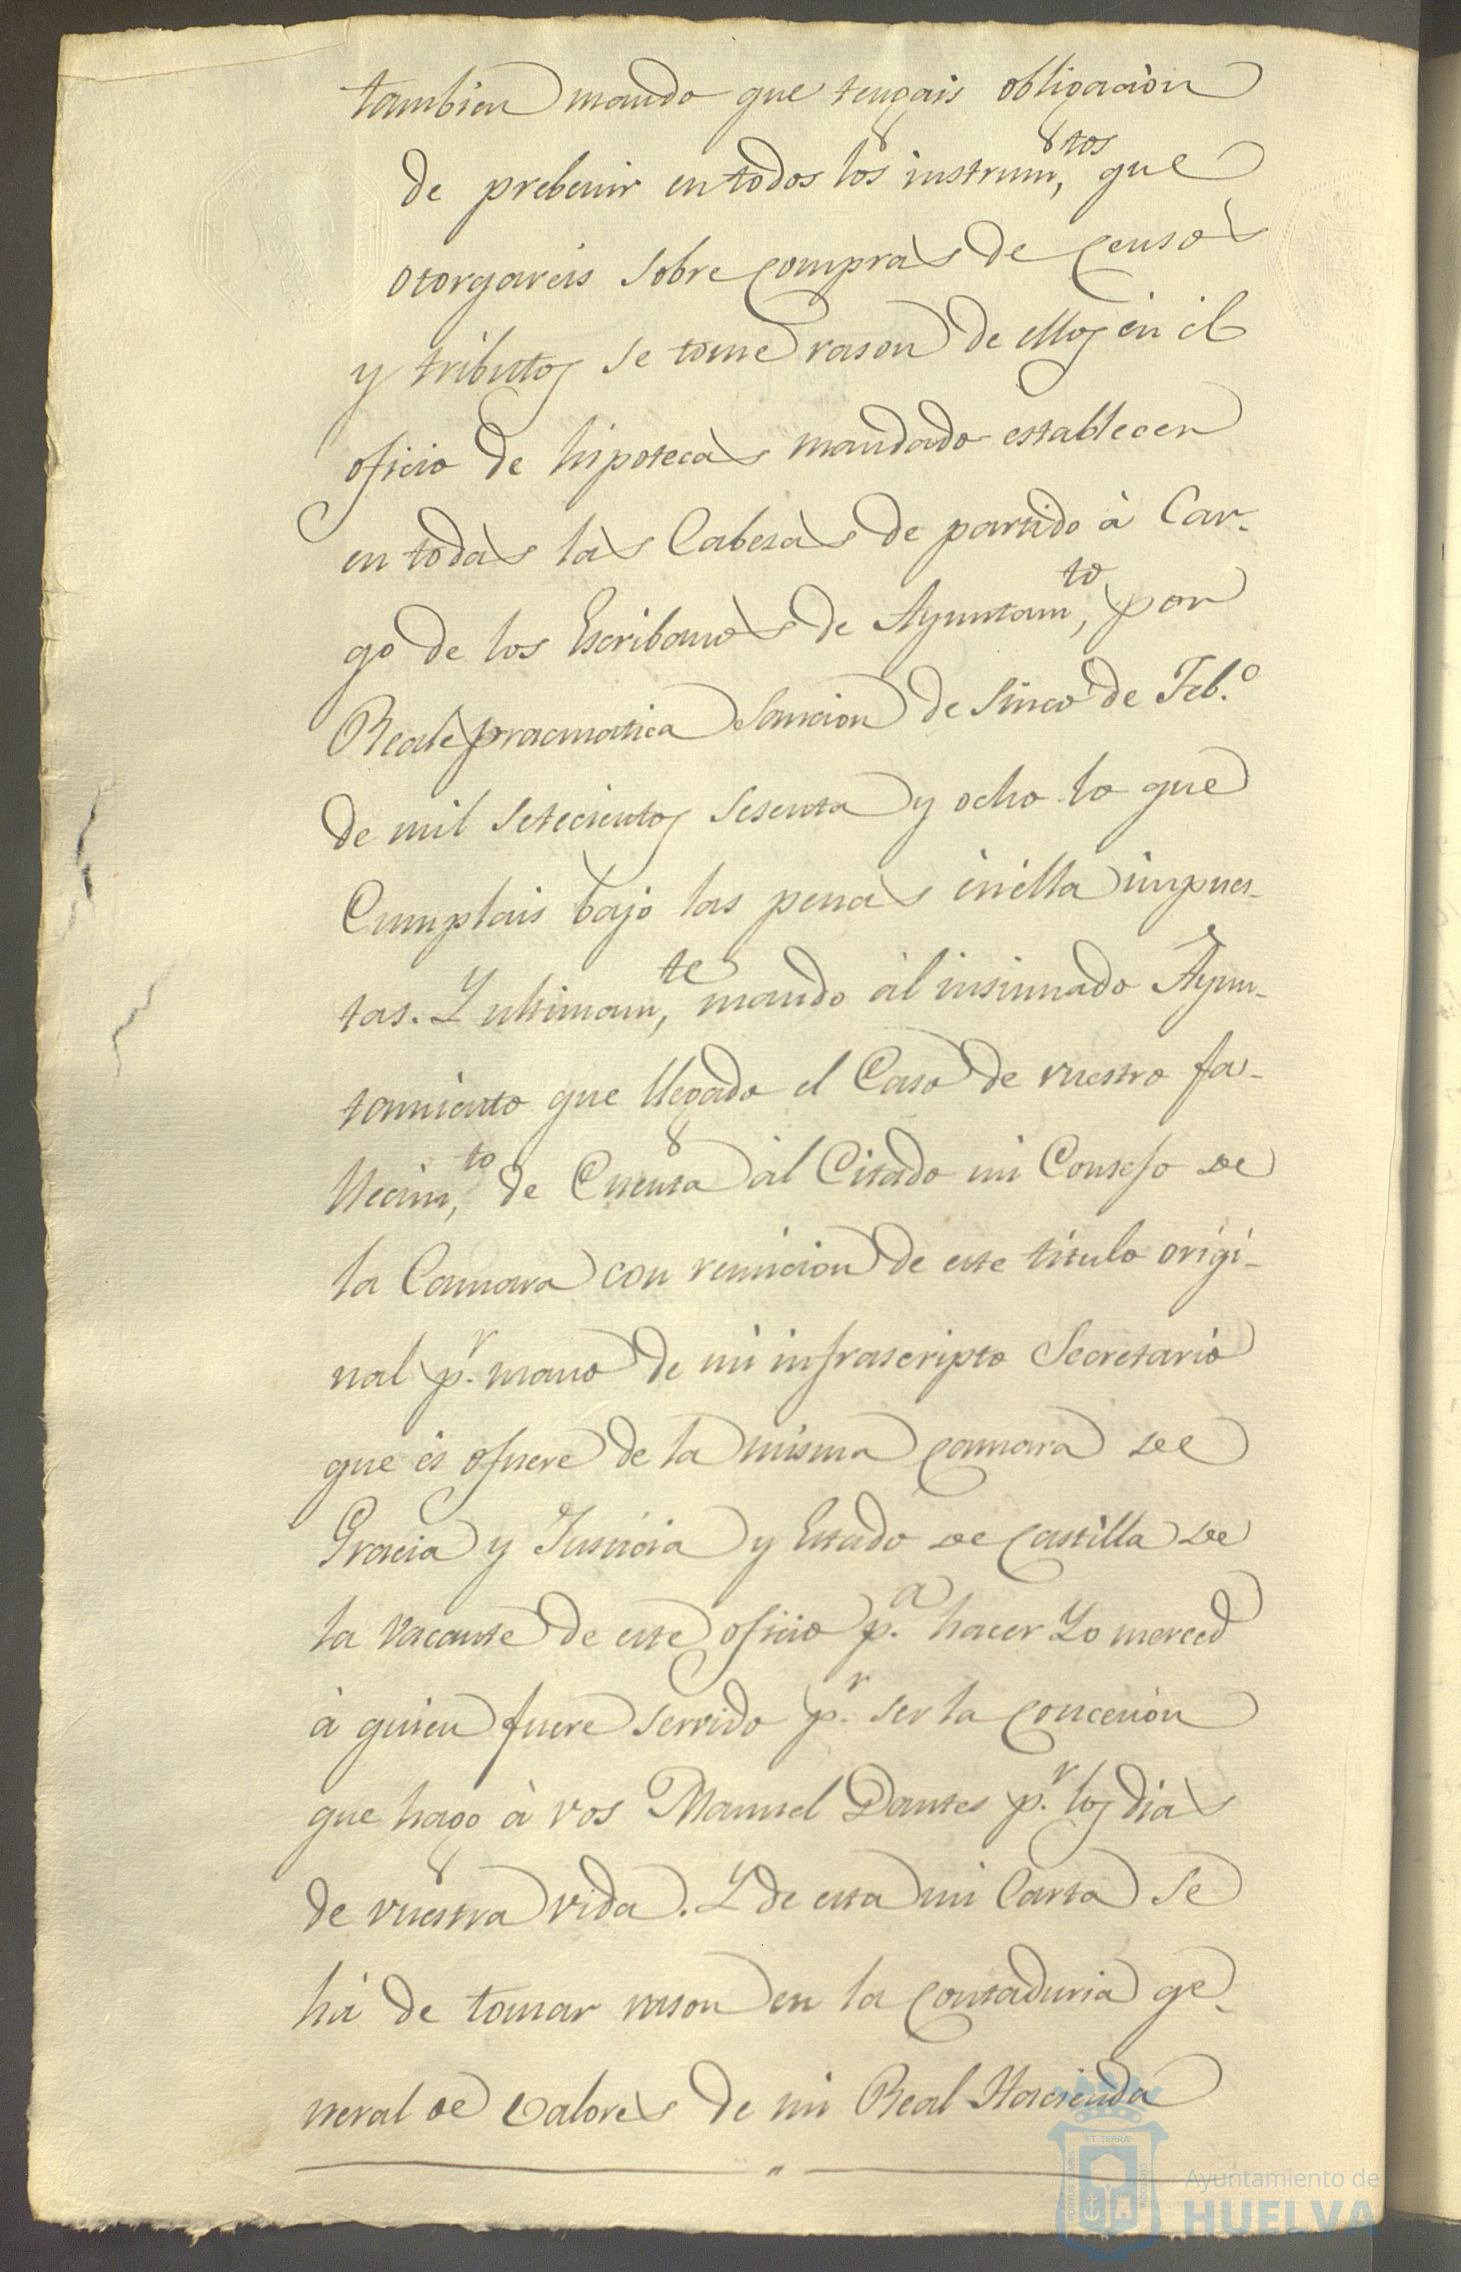 tambien mando que tengais obligacion
de prebenir en todos los instrum,tos que
otorgareis sobre compras de censos
y tributos se tome rason de ellos en èl
oficio de hipotecas mandado establecer
en todas las Cabesas de partido à Car-
go de los Escribanos de Ayuntam,to por
Real pracmatica sancion de sinco de Feb.o
de mil setecientos sesenta y ocho lo que
Cumplais bajo las penas en èlla impues-
tas. Y ultimam,te mando al insinuado Ayun-
tamiento que llegado el Caso de vuestro fa-
llecim,to de Cuenta àl Citado mi Consejo de
la Camara con remicion de este titulo origi-
nal p.r mano de mi infrascripto Secretario
que ès ofuere de la misma camara de
Gracia y Justicia y Estado de Castilla de
la vacante de este oficio p.a hacer Yo merced
à quien fuere servido p.r ser la concecion
que hago à vos Manuel Dantes p.r los dias
de vuestra vida. Y de esta mi Carta se
hà de tomar rason en la contaduria ge-
neral de valores de mi Real Hacienda
Ayuntamiento de
HUELVA